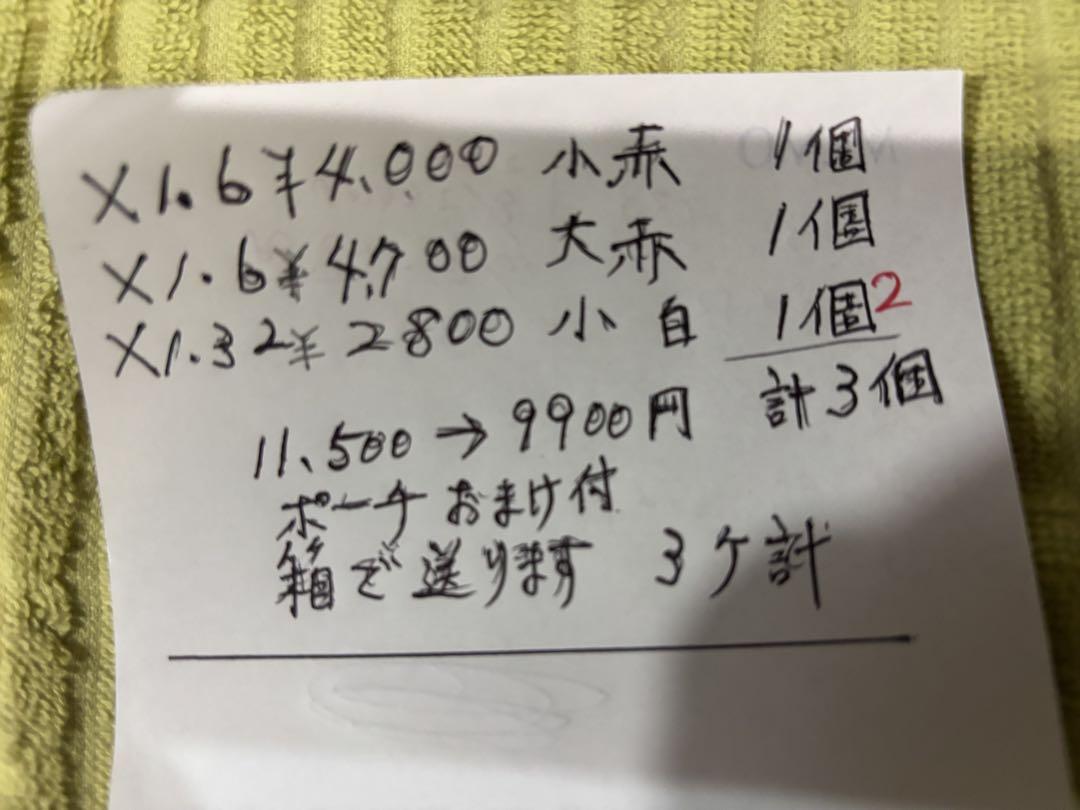 ×1.6 ¥4,000 小赤 1個
×1.6 ¥4,700 大赤 1個
×1.32 ¥2800 小白 1個 2
計3個
11,500→9900円
ポーチおまけ付
箱で送ります 3ケ計